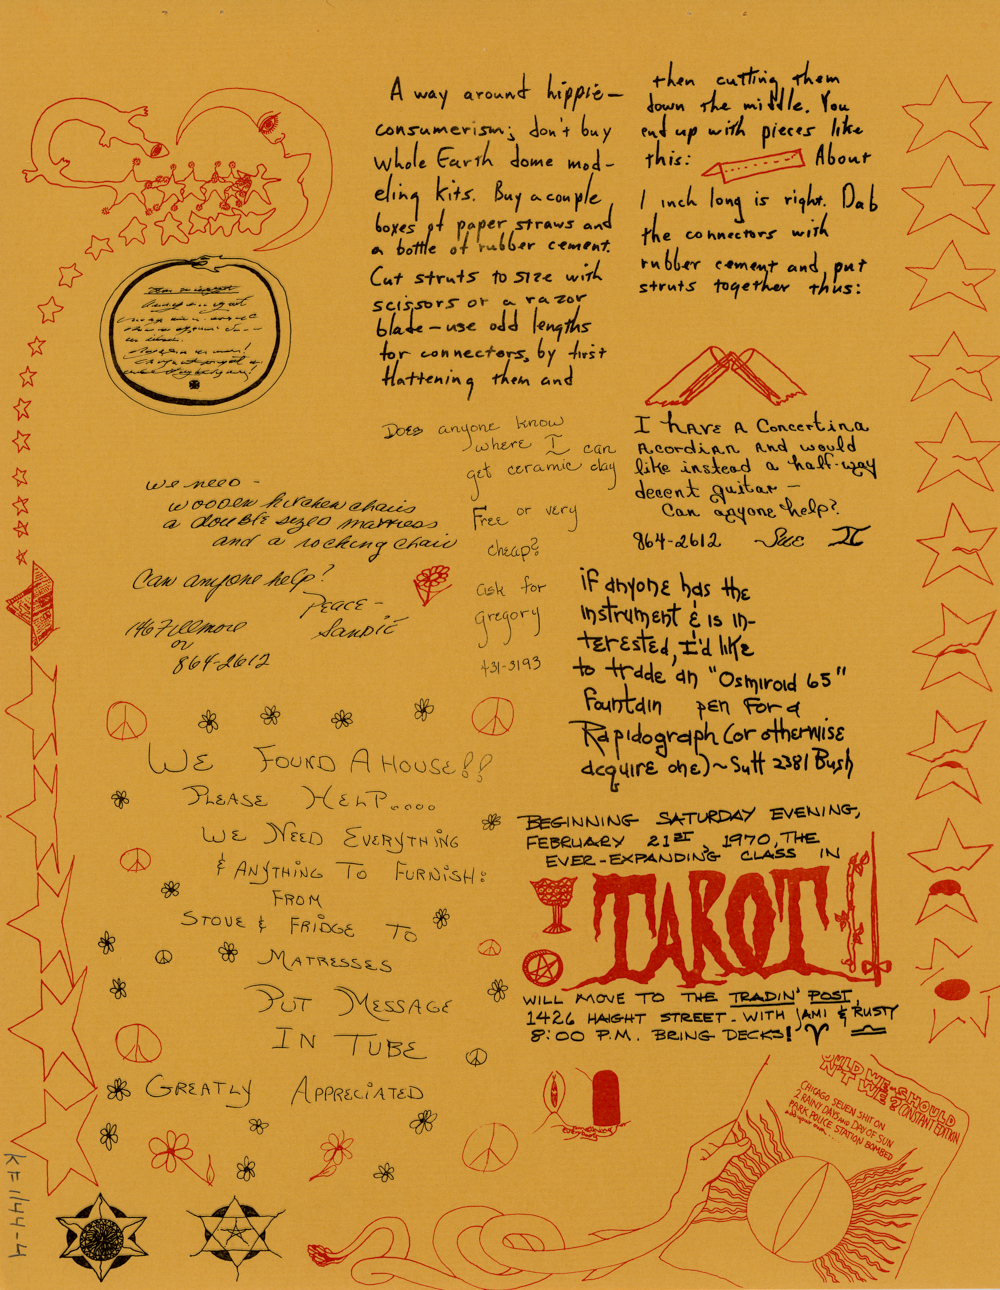 A way around hippie-
consumerism; don't buy
Whole Earth dome mod-
eling kits. Buy a couple
boxes of paper straws and
a bottle of rubber cement.
Cut struts to size with
scissors or a razor
blade — use odd lengths
for connectors, by first
flattening them and
then cutting them
down the middle. You
end up with pieces like
this: About
1 inch long is right. Dab
the connectors with
rubber cement and put
struts together thus:
Does anyone know
where I can
get ceramic clay
Free or very
cheap?
ask for
gregory
431-3193
I have a Concertina
Acordian and would
like instead a half-way
decent guitar —
Can anyone help?
864-2612 Sue II
we need -
wooden kitchen chairs
a double sized mattress
and a rocking chair
Can anyone help?
Peace -
Sandie
146 Fillmore
or
864-2612
if anyone has the
instrument & is in-
terested, I'd like
to trade an "Osmiroid 65"
fountain pen for a
Rapidograph (or otherwise
acquire one) ~ Sutt 2381 Bush
We Found A House!!
Please Help.....
We Need Everything
& Anything To Furnish:
From
Stove & Fridge To
Matresses
Put Message
In Tube
Greatly Appreciated
BEGINNING SATURDAY EVENING,
FEBRUARY 21ST, 1970, THE
EVER-EXPANDING CLASS IN
TAROT
WILL MOVE TO THE TRADIN' POST,
1426 HAIGHT STREET - WITH JAMI & RUSTY
8:00 P.M. BRING DECKS!
OULD WE-SHOULD
N'T WE? (INSTANT EDITION
CHICAGO SEVEN SHIT ON
2 RAINY DAYS AND DAY OF SUN
PARK POLICE STATION BOMBED
KF1144-4